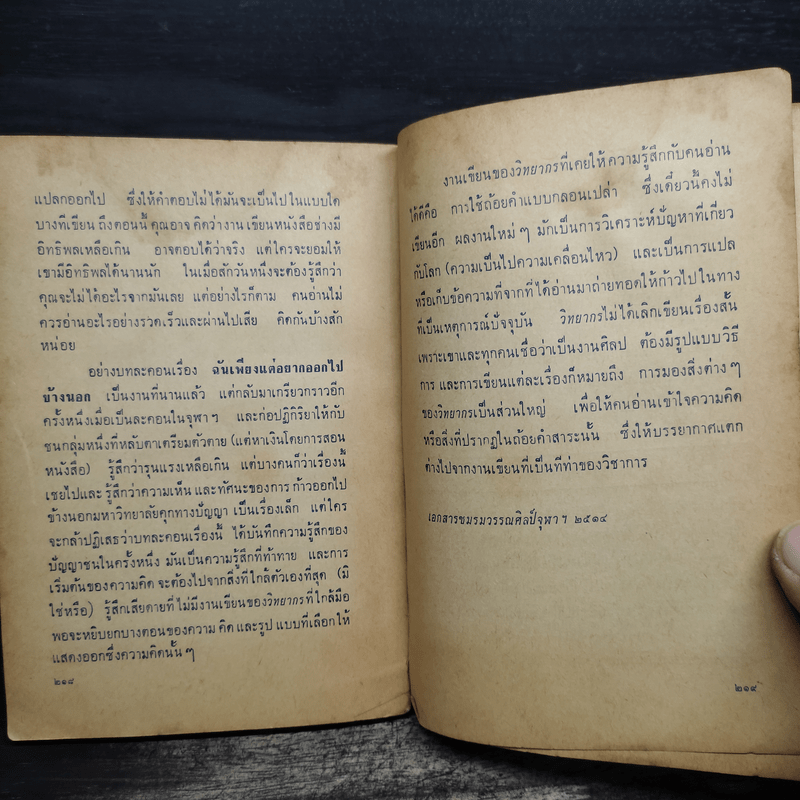 แปลกออกไป ซึ่งให้คำตอบไม่ได้มันจะเป็นไปในแบบใด
บางทีเขียน ถึงตอนนี้ คุณอาจ คิดว่างาน เขียนหนังสือช่างมี
อิทธิพลเหลือเกิน อาจตอบได้ว่าจริง แต่ใครจะยอมให้
เขามีอิทธิพลได้นานนัก ในเมื่อสักวันหนึ่งจะต้องรู้สึกว่า
คุณจะไม่ได้อะไรจากมันเลย แต่อย่างไรก็ตาม คนอ่านไม่
ควรอ่านอะไรอย่างรวดเร็วและผ่านไปเสีย คิดกันบ้างสัก
หน่อย
อย่างบทละคอนเรื่อง ฉันเพียงแต่อยากออกไป
ข้างนอก เป็นงานที่นานแล้ว แต่กลับมาเกรียวกราวอีก
ครั้งหนึ่งเมื่อเป็นละคอนในจุฬาฯ และก่อปฏิกิริยาให้กับ
ชนกลุ่มหนึ่งที่หลับตาเตรียมตัวตาย (แต่หาเงินโดยการสอน
หนังสือ) รู้สึกว่ารุนแรงเหลือเกิน แต่บางคนก็ว่าเรื่องนี้
เชยไปและ รู้สึกว่าความเห็น และทัศนะของการ ก้าวออกไป
ข้างนอกมหาวิทยาลัยคุกทางปัญญา เป็นเรื่องเล็ก แต่ใคร
จะกล้าปฏิเสธว่าบทละคอนเรื่องนี้ ได้บันทึกความรู้สึกของ
ปัญญาชนในครั้งหนึ่ง มันเป็นความรู้สึกที่ท้าทาย และการ
เริ่มต้นของความคิด จะต้องไปจากสิ่งที่ใกล้ตัวเองที่สุด (มิ
ใช่หรือ) รู้สึกเสียดายที่ ไม่มีงานเขียนของวิทยากรที่ใกล้มือ
พอจะหยิบยกบางตอนของความ คิด และรูป แบบที่เลือกให้
แสดงออกซึ่งความคิดนั้น ๆ
๒๑๘
งานเขียนของวิทยากรที่เคยให้ ความรู้สึกกับคนอ่าน
ได้ดีคือ การใช้ถ้อยคำแบบกลอนเปล่า ซึ่งเดี๋ยวนี้คงไม่
เขียนอีก ผลงานใหม่ ๆ มักเป็นการวิเคราะห์ปัญหาที่เกี่ยว
กับโลก (ความเป็นไปความเคลื่อนไหว) และเป็นการแปล
หรือเก็บข้อความที่จากที่ได้อ่านมาถ่ายทอดให้ก้าวไปในทาง
ที่เป็นเหตุการณ์ปัจจุบัน วิทยากรไม่ได้เลิกเขียนเรื่องสั้น
เพราะเขาและทุกคนเชื่อว่าเป็นงานศิลป ต้องมีรูปแบบวิธี
การ และการเขียนแต่ละเรื่องก็หมายถึง การมองสิ่งต่าง ๆ
ของวิทยากรเป็นส่วนใหญ่ เพื่อให้คนอ่านเข้าใจความคิด
หรือสิ่งที่ปรากฏในถ้อยคำสาระนั้น ซึ่งให้บรรยากาศแตก
ต่างไปจากงานเขียนที่เป็นทีท่าของวิชาการ
เอกสารชมรมวรรณศิลป์จุฬาฯ ๒๕๑๔
๒๑๙